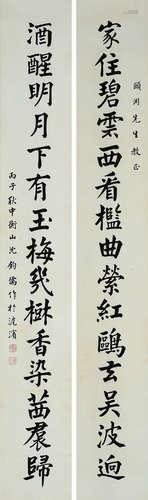 頤淵先生教正
家住碧雲西看檻曲縈紅鷗玄吳波迥
酒醒明月下有玉梅幾樹香染茜裙歸
丙子秋中衡山沈鈞儒作於滬濱